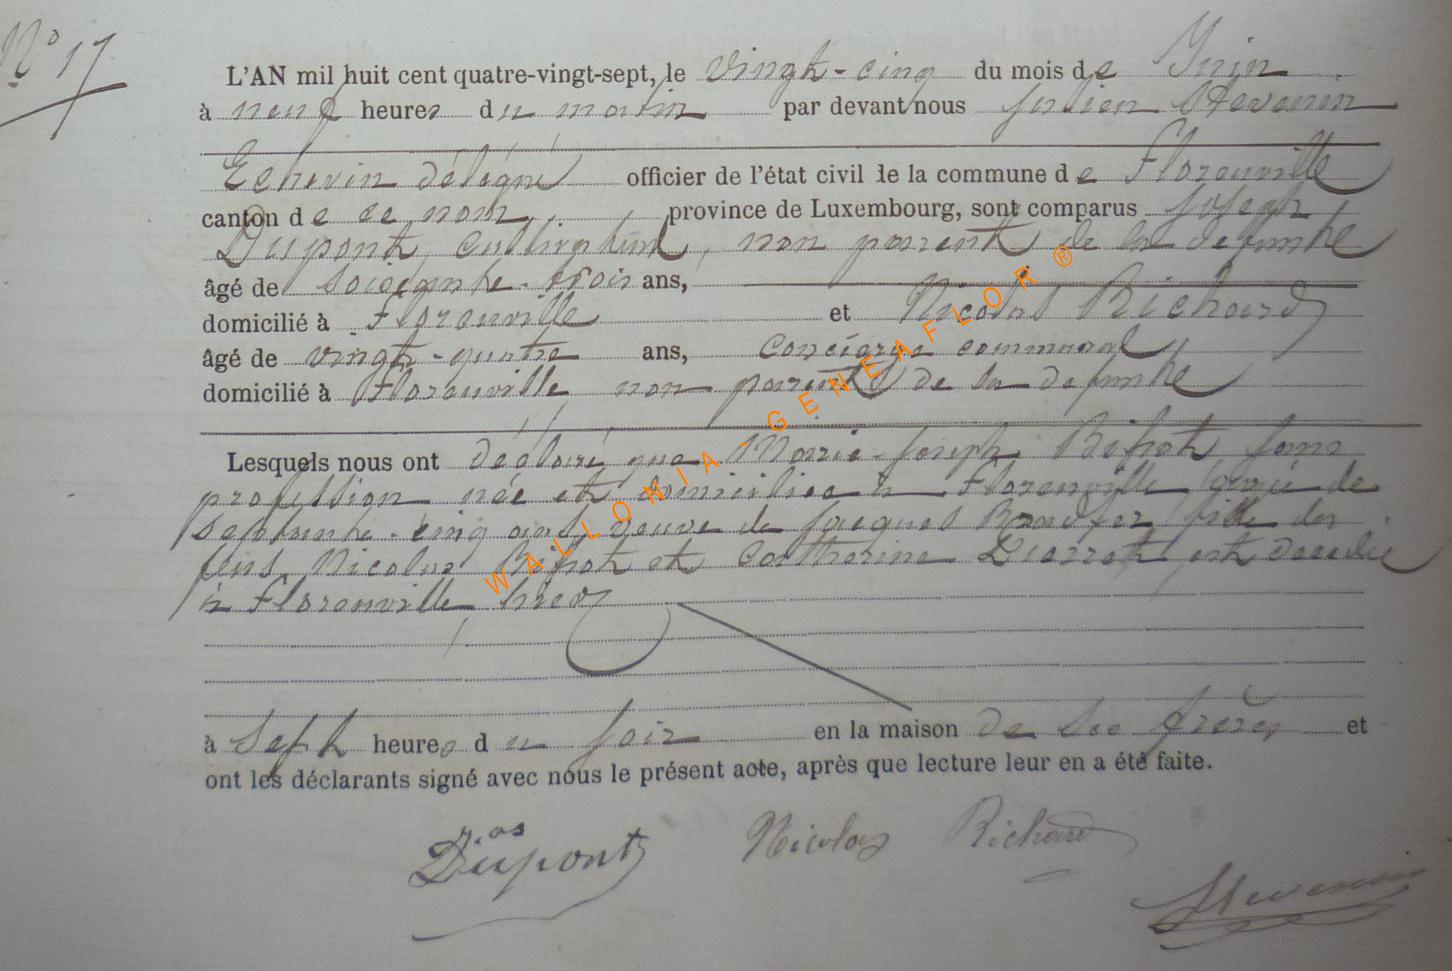 N° 17
L'AN mil huit cent quatre-vingt-sept, le vingt-cinq du mois de Juin
à neuf heures du matin par devant nous Julien Stevenin
Echevin délégué officier de l'état civil de la commune de Florenville
canton de ce nom, province de Luxembourg, sont comparus Joseph
Dupont, cultivateur, non parent de la défunte
âgé de soixante-trois ans,
domicilié à Florenville et Nicolas Richard
âgé de vingt-quatre ans, concierge communal
domicilié à Florenville non parent de la défunte
Lesquels nous ont déclaré que Marie-Joseph sans
profession née et domiciliée à Florenville âgée de
septante-cinq ans, veuve de Jacques fille des
feus Nicolas et Catherine est décédée
à Florenville hier
à Sept heures du soir en la maison de ses frères et
ont les déclarants signé avec nous le présent acte, après que lecture leur en a été faite.
Dupont Nicolas Richard
Stevenin
WALLONIA - GENEAFLOR ®